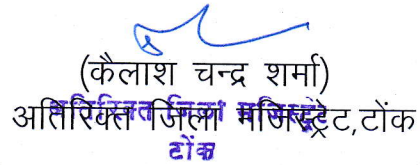 (कैलाश चन्द्र शर्मा)
अतिरिक्त जिला मजिस्ट्रेट,टोंक
अतिरिक्त जिला मजिस्ट्रेट
टोंक